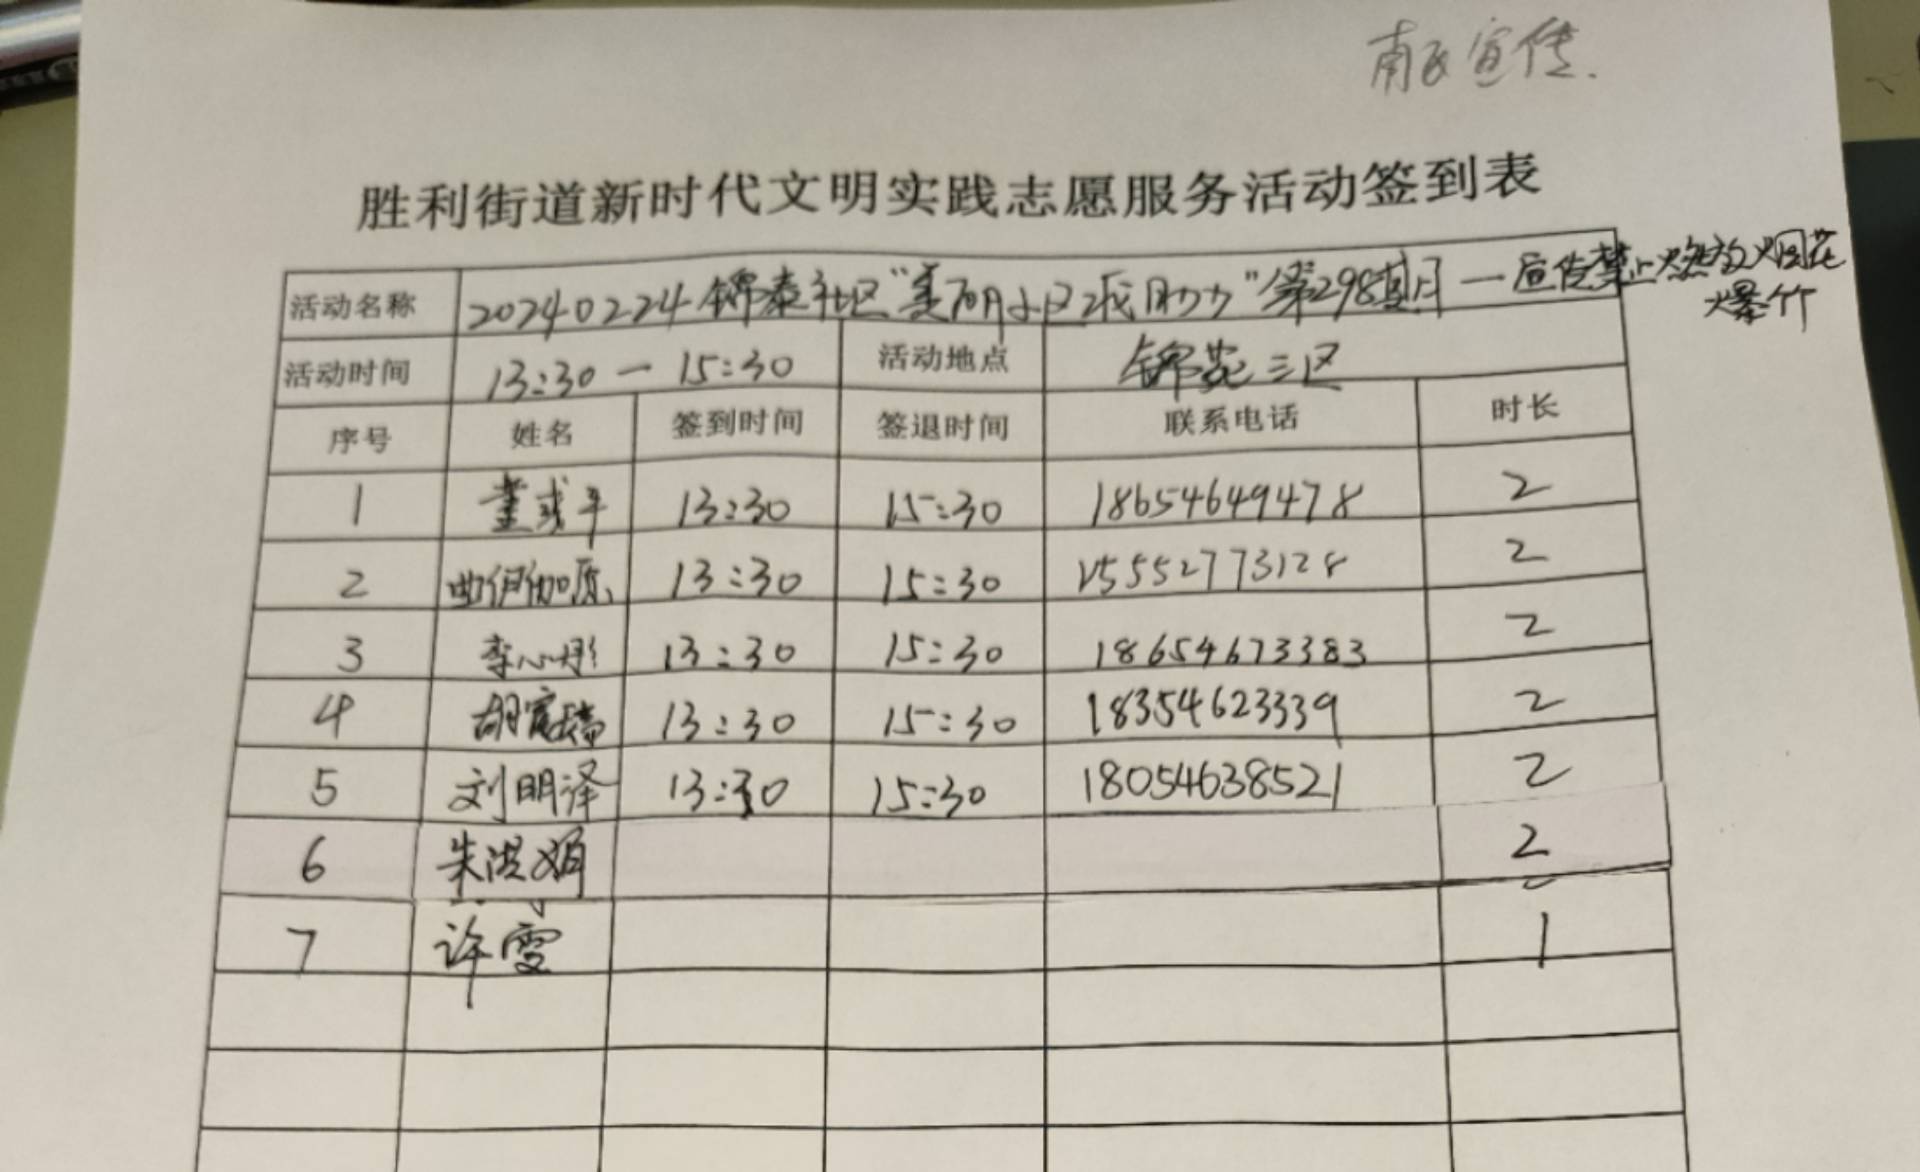 南区宣传.
胜利街道新时代文明实践志愿服务活动签到表
活动名称 20240224锦泰社区"美丽小区我助力"第298期—宣传禁止燃放烟花
爆竹
活动时间 13:30—15:30 活动地点 锦苑三区
序号 姓名 签到时间 签退时间 联系电话 时长
1 13:30 15:30 18654649478 2
2 曲伊伽原 13:30 15:30 15552773128 2
3 李心彤 13:30 15:30 18654673383 2
4 胡富瑞 13:30 15:30 18354623339 2
5 刘明泽 13:30 15:30 18054638521 2
6 朱洪娟 2
7 许雯 1